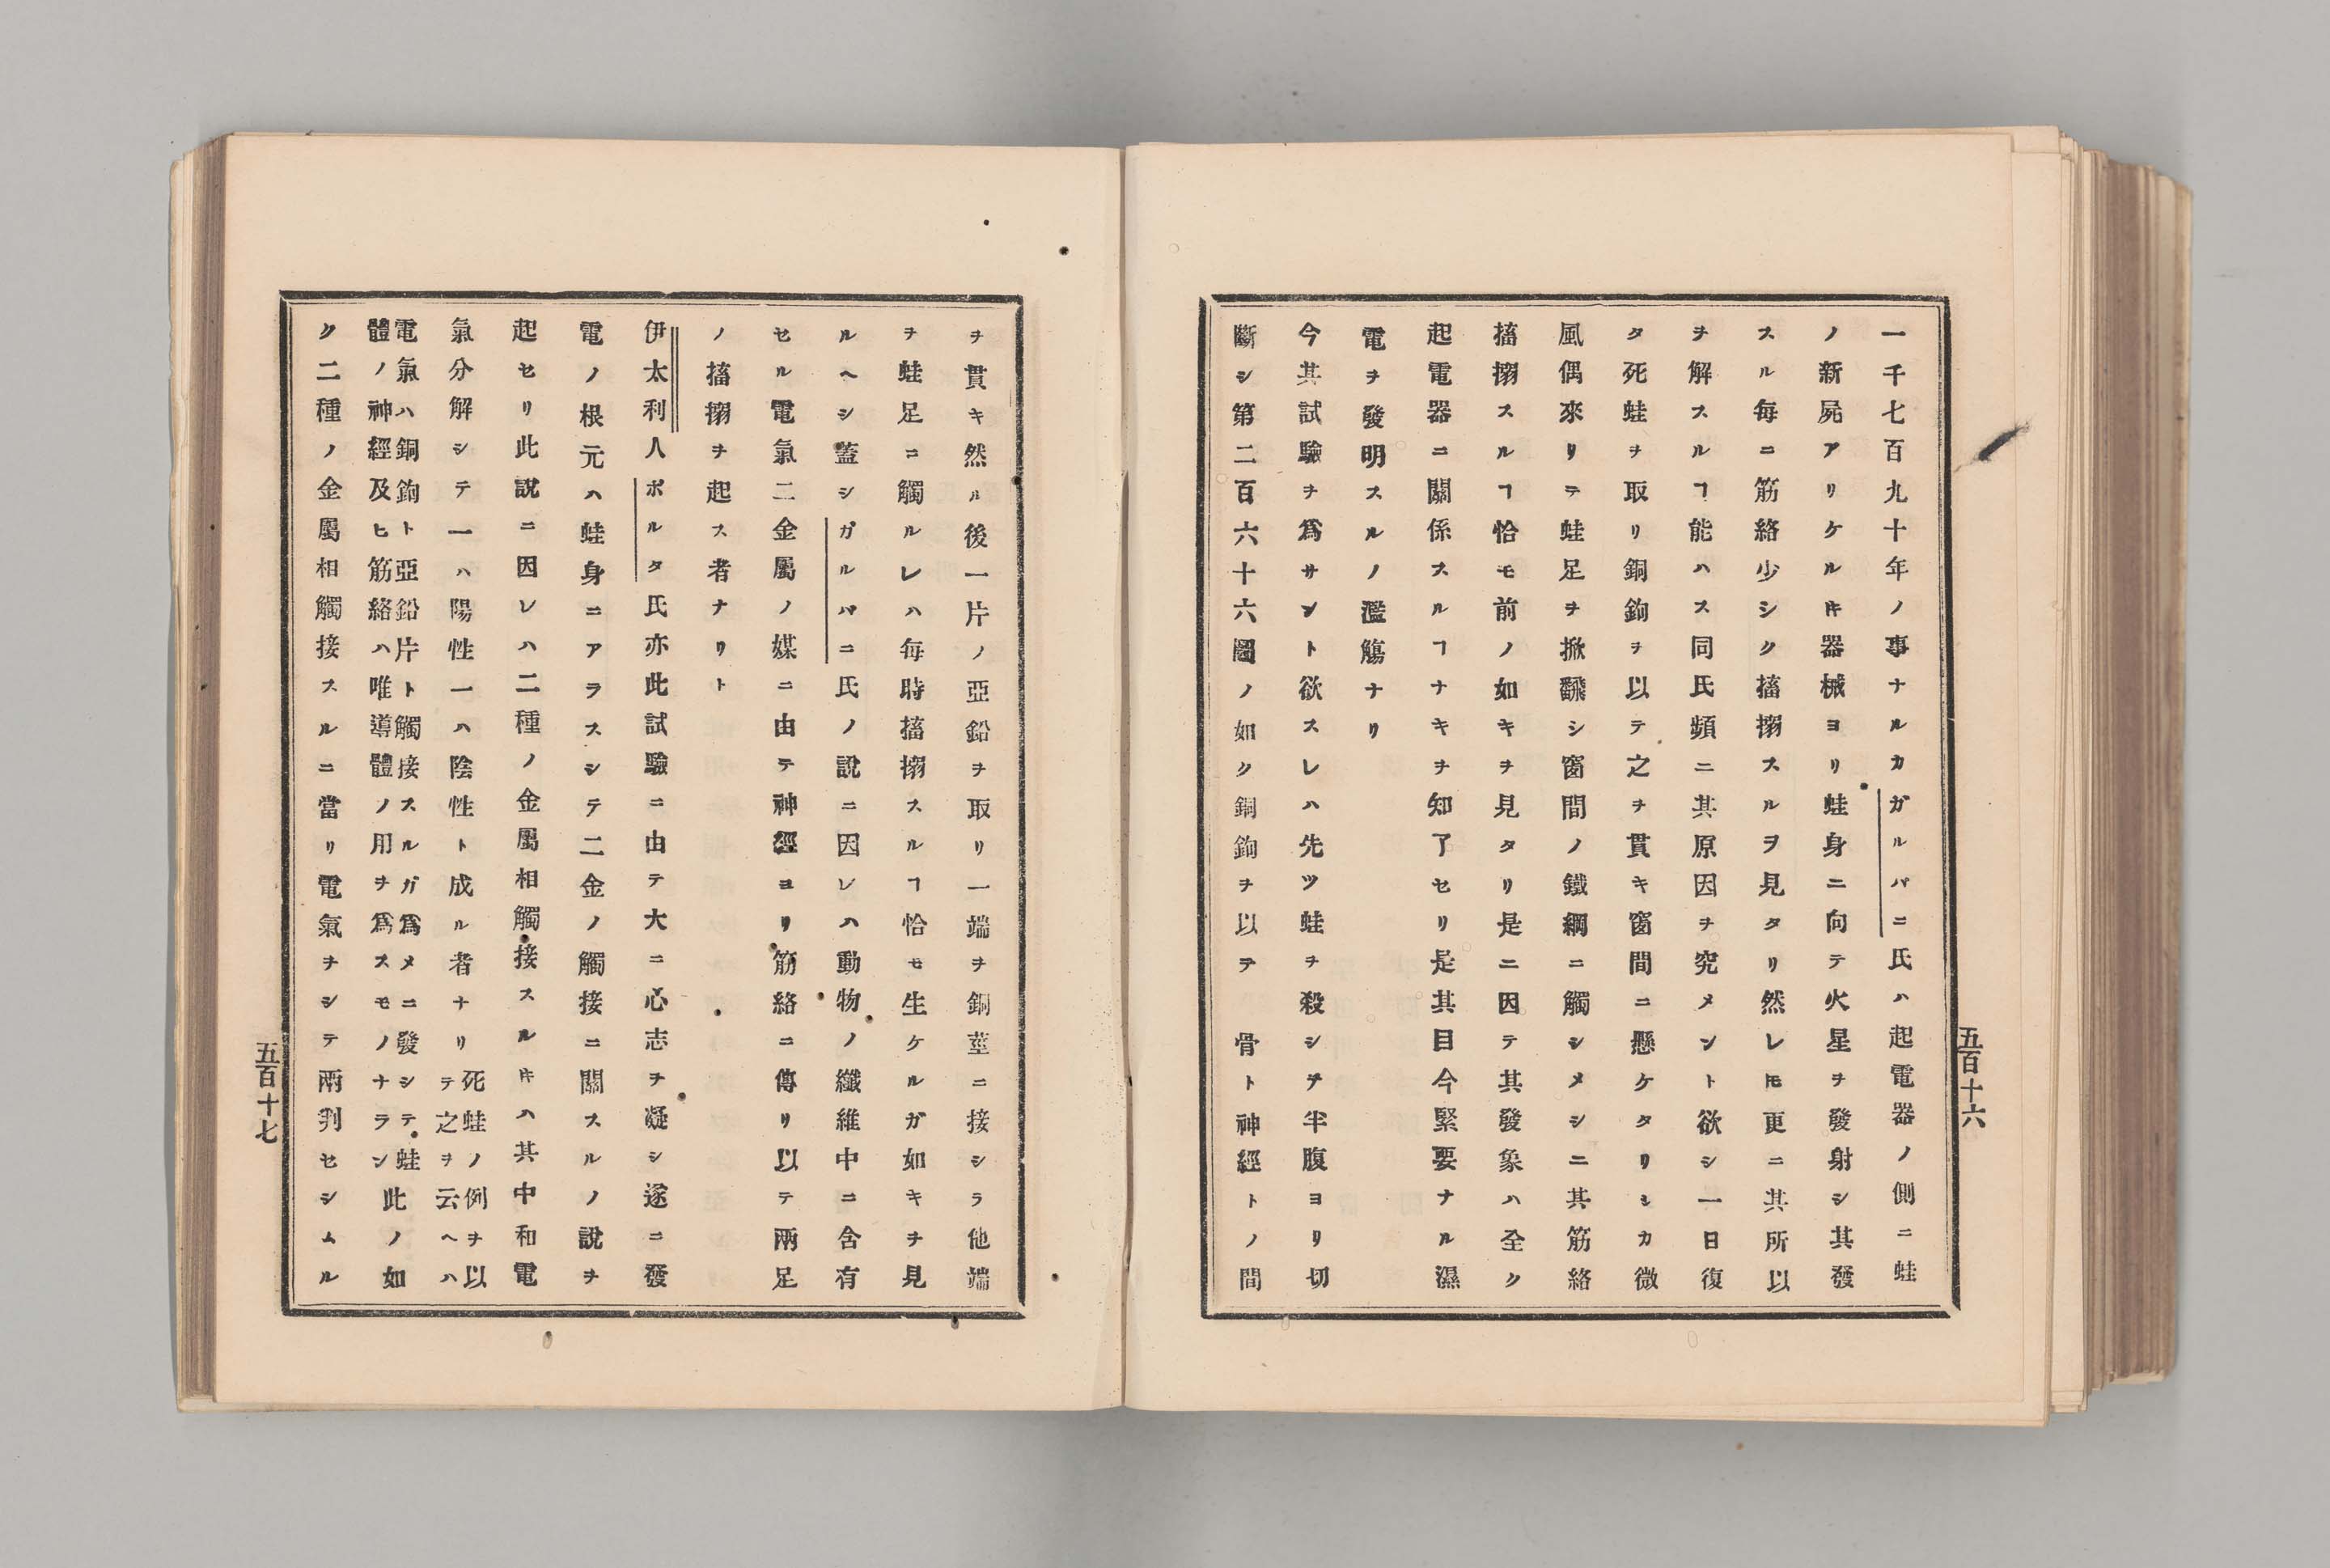 五百十六
一千七百九十年ノ事ナルカガルバニ氏ハ起電器ノ側ニ蛙
ノ新屍アリケルキ器械ヨリ蛙身ニ向テ火星ヲ發射シ其發
スル每ニ筋絡少シク搐搦スルヲ見タリ然レ𪜈更ニ其所以
ヲ解スルヿ能ハス同氏頻ニ其原因ヲ究メント欲シ一日復
タ死蛙ヲ取リ銅鉤ヲ以テ之ヲ貫キ窗間ニ懸ケタリシカ微
風偶來リテ蛙足ヲ掀飜シ窗間ノ鐵綱ニ觸シメシニ其筋絡
搐搦スルヿ恰モ前ノ如キヲ見タリ是ニ因テ其發象ハ全ク
起電器ニ關係スルヿナキヲ知了セリ是其目今緊要ナル濕
電ヲ發明スルノ濫觴ナリ
今其試驗ヲ爲サント欲スレハ先ツ蛙ヲ殺シテ半腹ヨリ切
斷シ第二百六十六圖ノ如ク銅鉤ヲ以テ 骨ト神經トノ間
ヲ貫キ然ル後一片ノ亞鉛ヲ取リ一端ヲ銅莖ニ接シラ他端
ヲ蛙足ニ觸ルレハ每時搐搦スルヿ恰モ生ケルガ如キヲ見
ルヘシ蓋シガルバニ氏ノ說ニ因レハ動物ノ纖維中ニ含有
セル電氣二金屬ノ媒ニ由テ神經ヨリ筋絡ニ傳リ以テ兩足
ノ搐搦ヲ起ス者ナリト
伊太利人ボルタ氏亦此試驗ニ由テ大ニ心志ヲ凝シ遂ニ發
電ノ根元ハ蛙身ニアラスシテ二金ノ觸接ニ關スルノ說ヲ
起セリ此說ニ因レハ二種ノ金屬相觸接スルキハ其中和電
氣分解シテ一ハ陽性一ハ陰性ト成ル者ナリ死蛙ノ例ヲ以
テ之ヲ云ヘハ
電氣ハ銅鉤ト亞鉛片ト觸接スルガ爲メニ發シテ蛙
體ノ神經及ヒ筋絡ハ唯導體ノ用ヲ爲スモノナラン此ノ如
ク二種ノ金屬相觸接スルニ當リ電氣ヲシテ兩判セシムル
五百十七